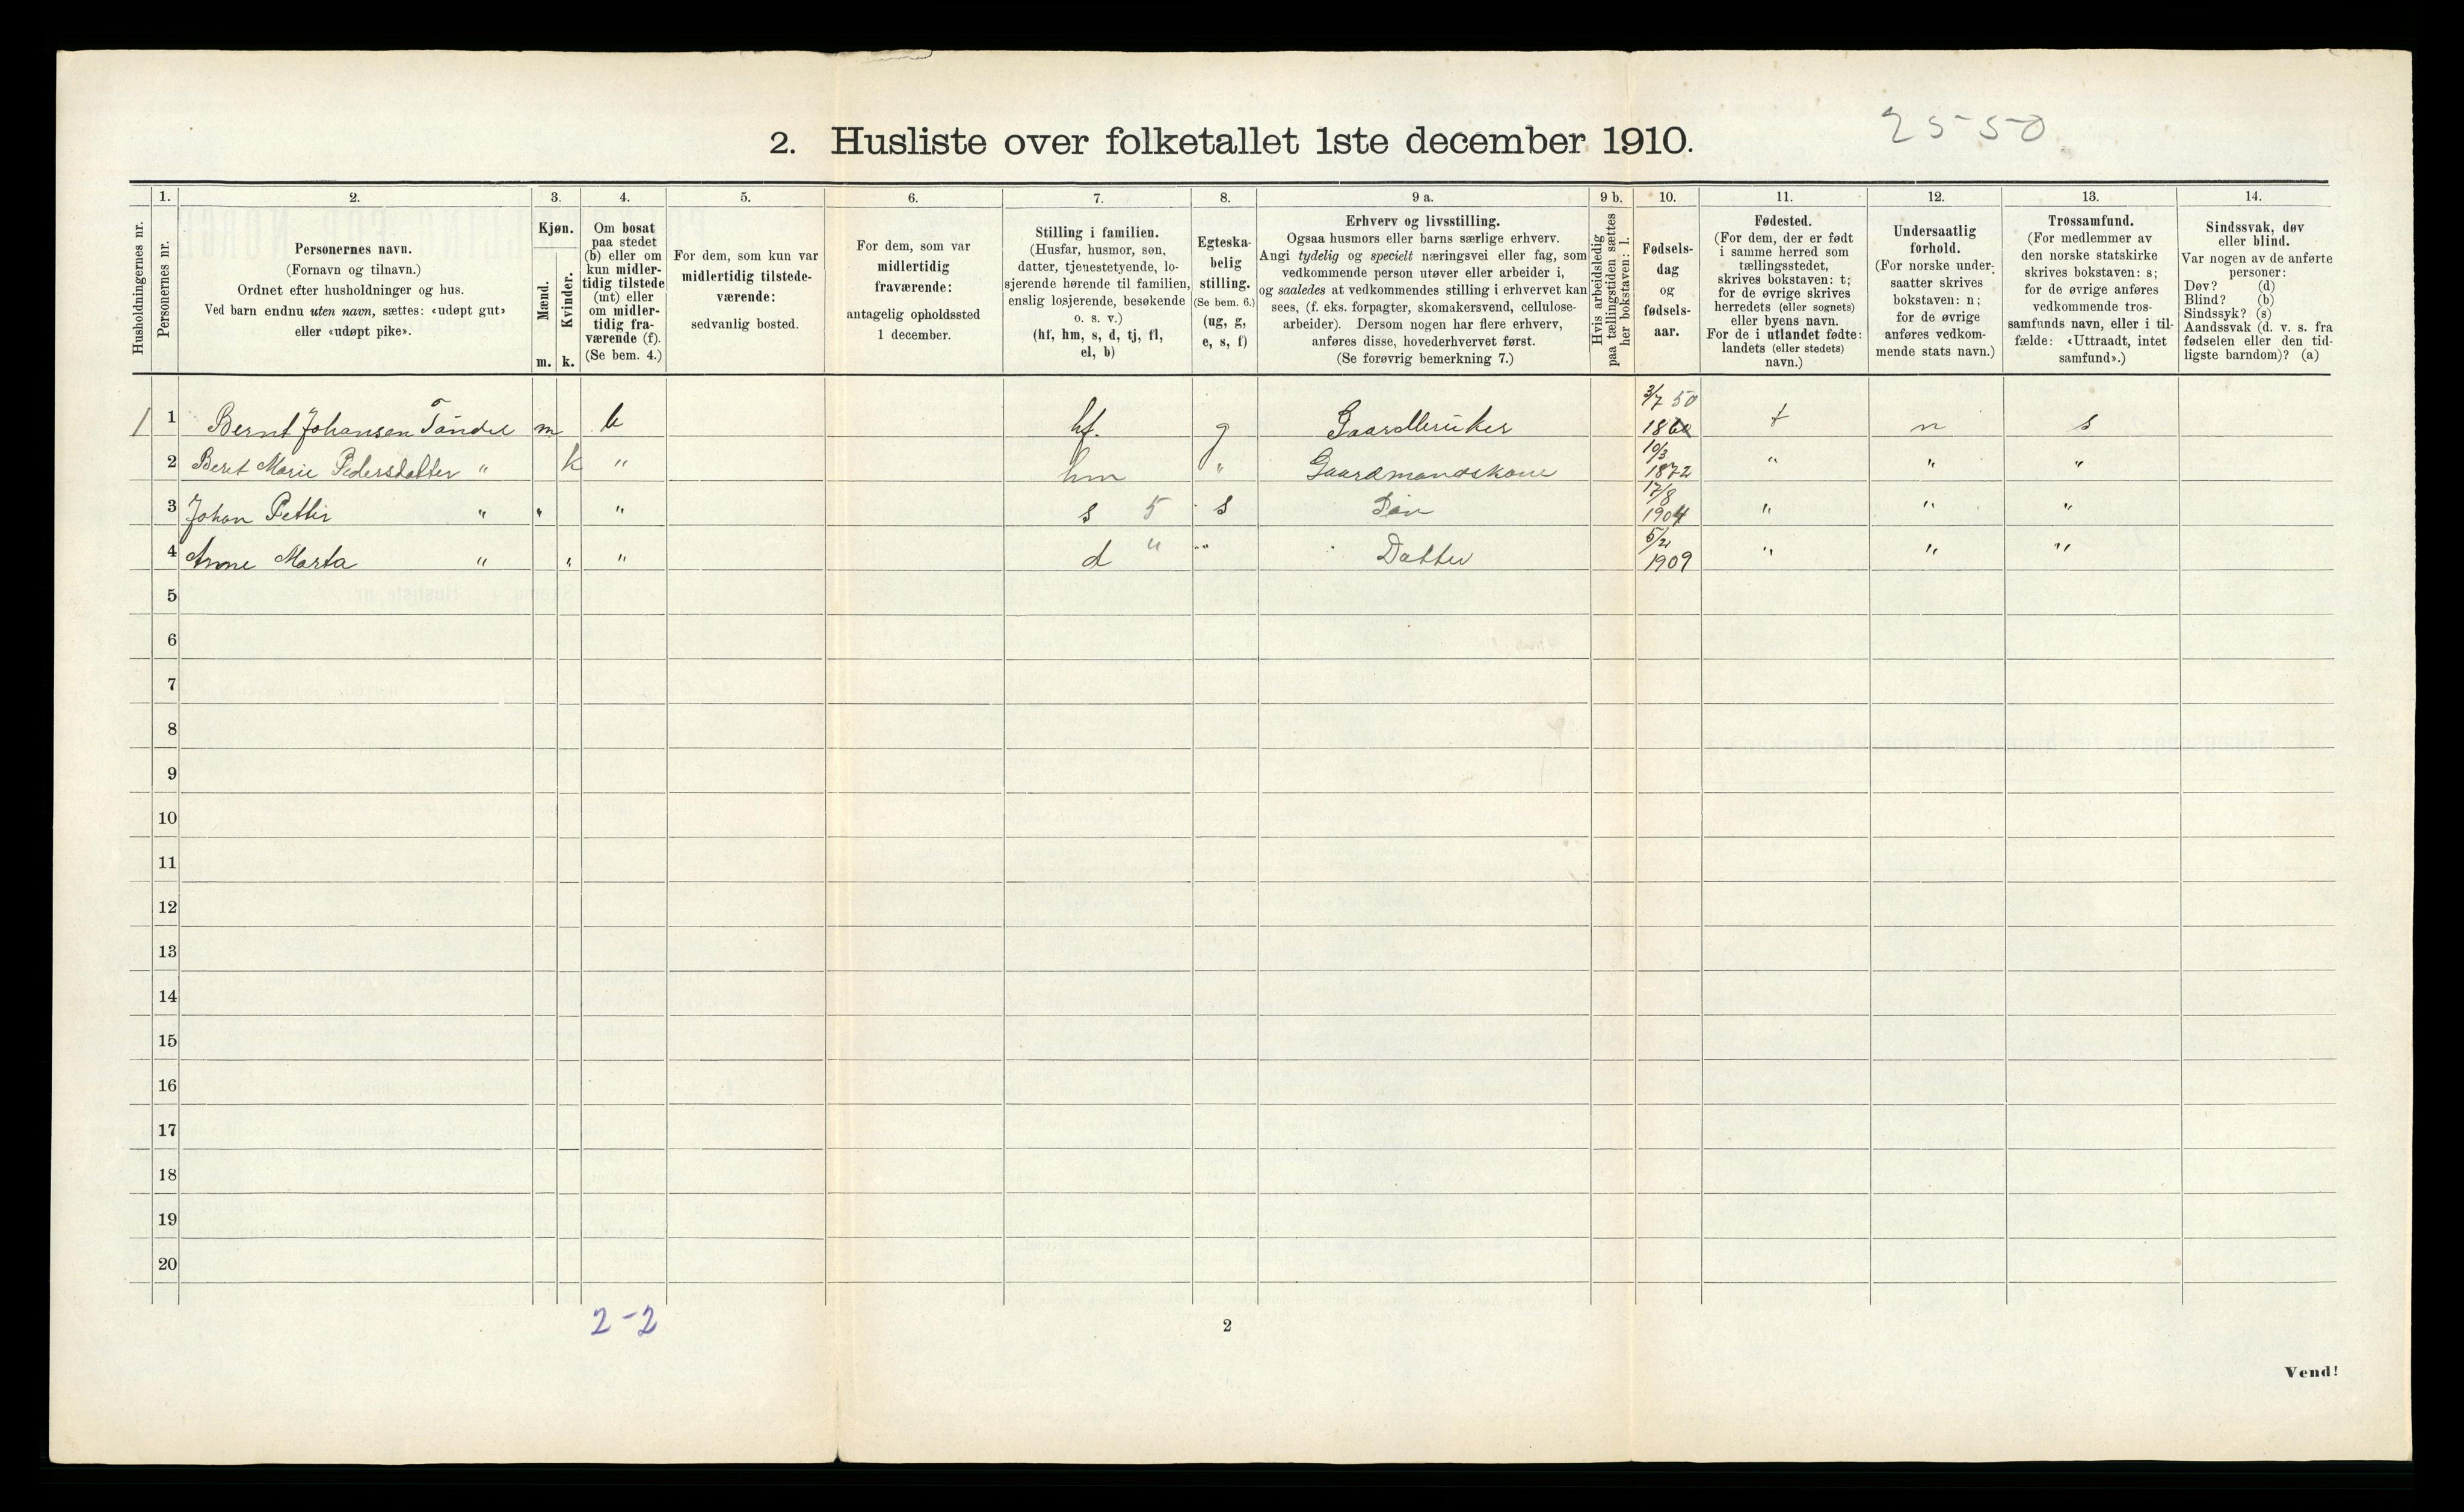 25-50
2. Husliste over folketallet 1ste december 1910.
Husholdningernes nr.
1.
Personernes nr.
2.
Personernes navn.
(Fornavn og tilnavn.)
Ordnet efter husholdninger og hus.
Ved barn endnu uten navn, sættes: «udøpt gut»
eller «udøpt pike».
3.
Kjøn.
Mænd.
Kvinder.
m. k.
4.
Om bosat
paa stedet
(b) eller om
kun midler-
tidig tilstede
(mt) eller
om midler-
tidig fra-
værende (f).
(Se bem. 4.)
5.
For dem, som kun var
midlertidig tilstede-
værende:
sedvanlig bosted.
6.
For dem, som var
midlertidig
fraværende:
antagelig opholdssted
1 december.
7.
Stilling i familien.
(Husfar, husmor, søn,
datter, tjenestetyende, lo-
sjerende hørende til familien,
enslig losjerende, besøkende
o. s. v.)
(hf, hm, s, d, tj, fl,
el, b)
8.
Egteska-
belig
stilling.
(Se bem. 6.)
(ug, g,
e, s, f)
9 a.
Erhverv og livsstilling.
Ogsaa husmors eller barns særlige erhverv.
Angi tydelig og specielt næringsvei eller fag, som
vedkommende person utøver eller arbeider i,
og saaledes at vedkommendes stilling i erhvervet kan
sees, (f. eks. forpagter, skomakersvend, cellulose-
arbeider). Dersom nogen har flere erhverv,
anføres disse, hovederhvervet først.
(Se forøvrig bemerkning 7.)
9 b.
Hvis arbeidsledig
paa tællingstiden sættes
her bokstaven: l.
10.
Fødsels-
dag
og
fødsels-
aar.
11.
Fødested.
(For dem, der er født
i samme herred som
tællingsstedet,
skrives bokstaven: t;
for de øvrige skrives
herredets (eller sognets)
eller byens navn.
For de i utlandet fødte:
landets (eller stedets)
navn.)
12.
Undersaatlig
forhold.
(For norske under-
saatter skrives
bokstaven: n;
for de øvrige
anføres vedkom-
mende stats navn.)
13.
Trossamfund.
(For medlemmer av
den norske statskirke
skrives bokstaven: s;
for de øvrige anføres
vedkommende tros-
samfunds navn, eller i til-
fælde: «Uttraadt, intet
samfund».)
14.
Sindssvak, døv
eller blind.
Var nogen av de anførte
personer:
Døv? (d)
Blind? (b)
Sindssyk? (s)
Aandssvak (d. v. s. fra
fødselen eller den tid-
ligste barndom)? (a)
1 1 Bernt Johansen Tøndel m b hf. g Gaardbruker 3/7 50 1860 t n s
2 Beret Marie Pedersdatter " k " hm " Gaardmandskone 10/3 1872 " " "
3 Johan Petter " " " s 5 s Søn 17/8 1904 " " "
4 Anne Marta " " " d " " Datter 5/2 1909 " " "
5
6
7
8
9
10
11
12
13
14
15
16
17
18
19
20
2-2
2
Vend!